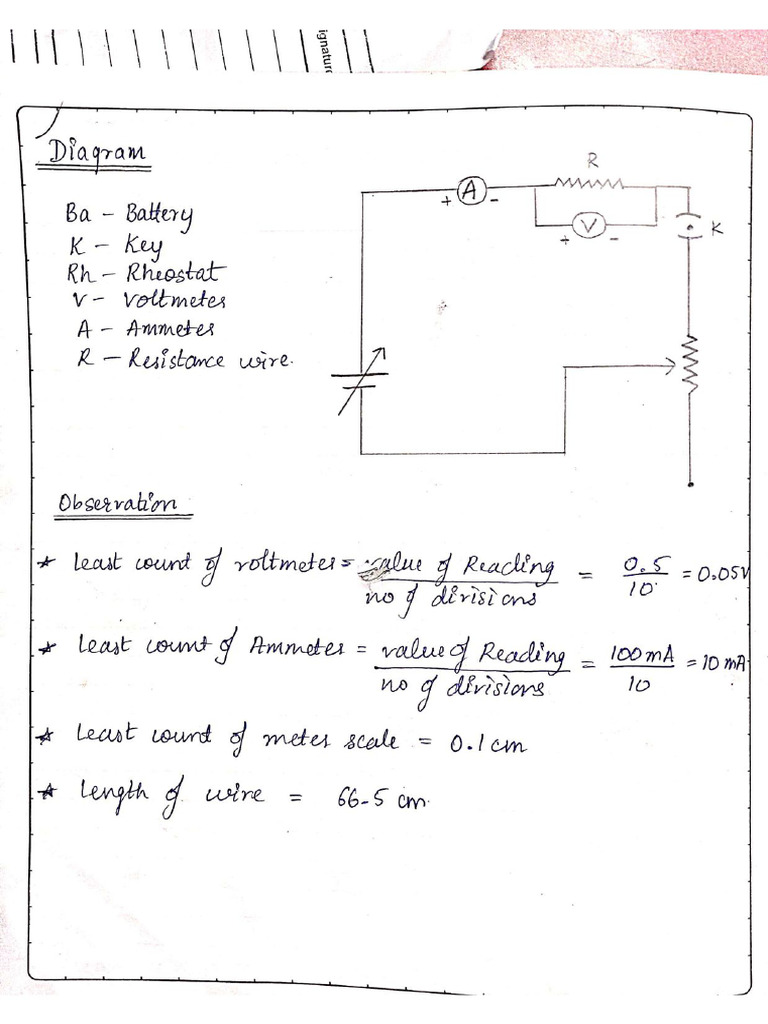 ignature
Diagram
Ba - Battery
K - Key
Rh - Rheostat
V - Voltmeter
A - Ammeter
R - Resistance wire.
R
A
+ -
V
+ -
K
Observation
* Least count of voltmeter = value of Reading / no of divisions = 0.5 / 10 = 0.05V
* Least count of Ammeter = value of Reading / no of divisions = 100mA / 10 = 10 mA
* Least count of meter scale = 0.1cm
* Length of wire = 66-5 cm.